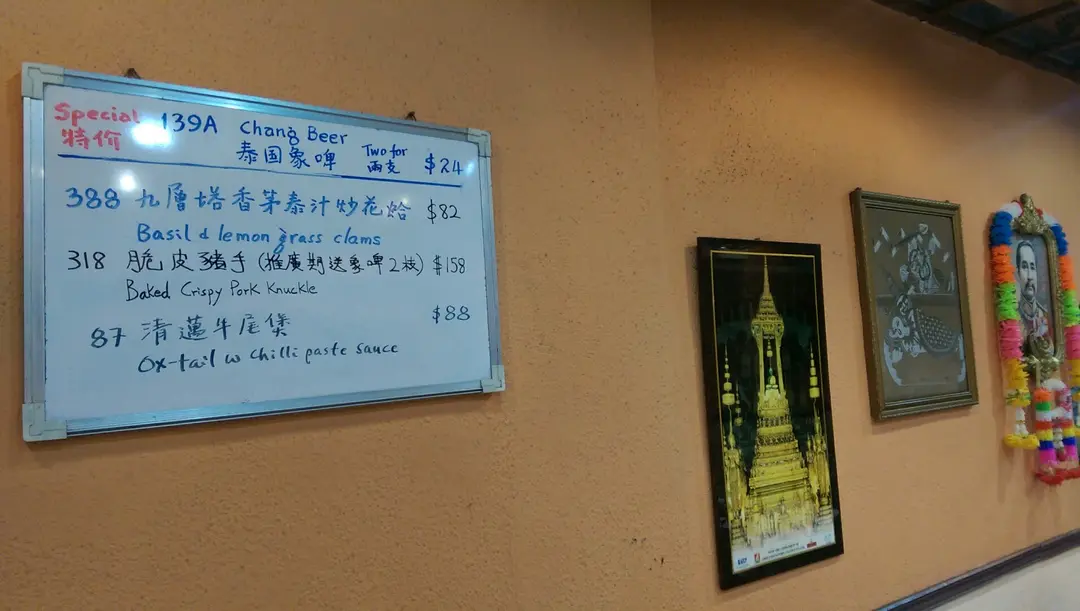 Special 139A Chang Beer Two for $24
特价 泰国象啤 兩支
388 九層塔香茅泰汁炒花蛤 $82
Basil & lemon grass clams
318 脆皮豬手 (推廣期送象啤2枝) $158
Baked Crispy Pork Knuckle
87 清邁牛尾煲 $88
Ox-tail w chilli paste sauce